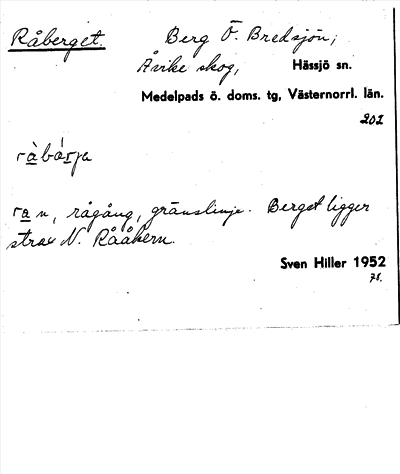 Råberget. Berg Ö. Bredsjön,
Åvike skog, Hässjö sn.
Medelpads ö. doms. tg, Västernorrl. län.
202
ra n, rågång, gränslinje. Berget ligger
strax N. Rååkern.
Sven Hiller 1952